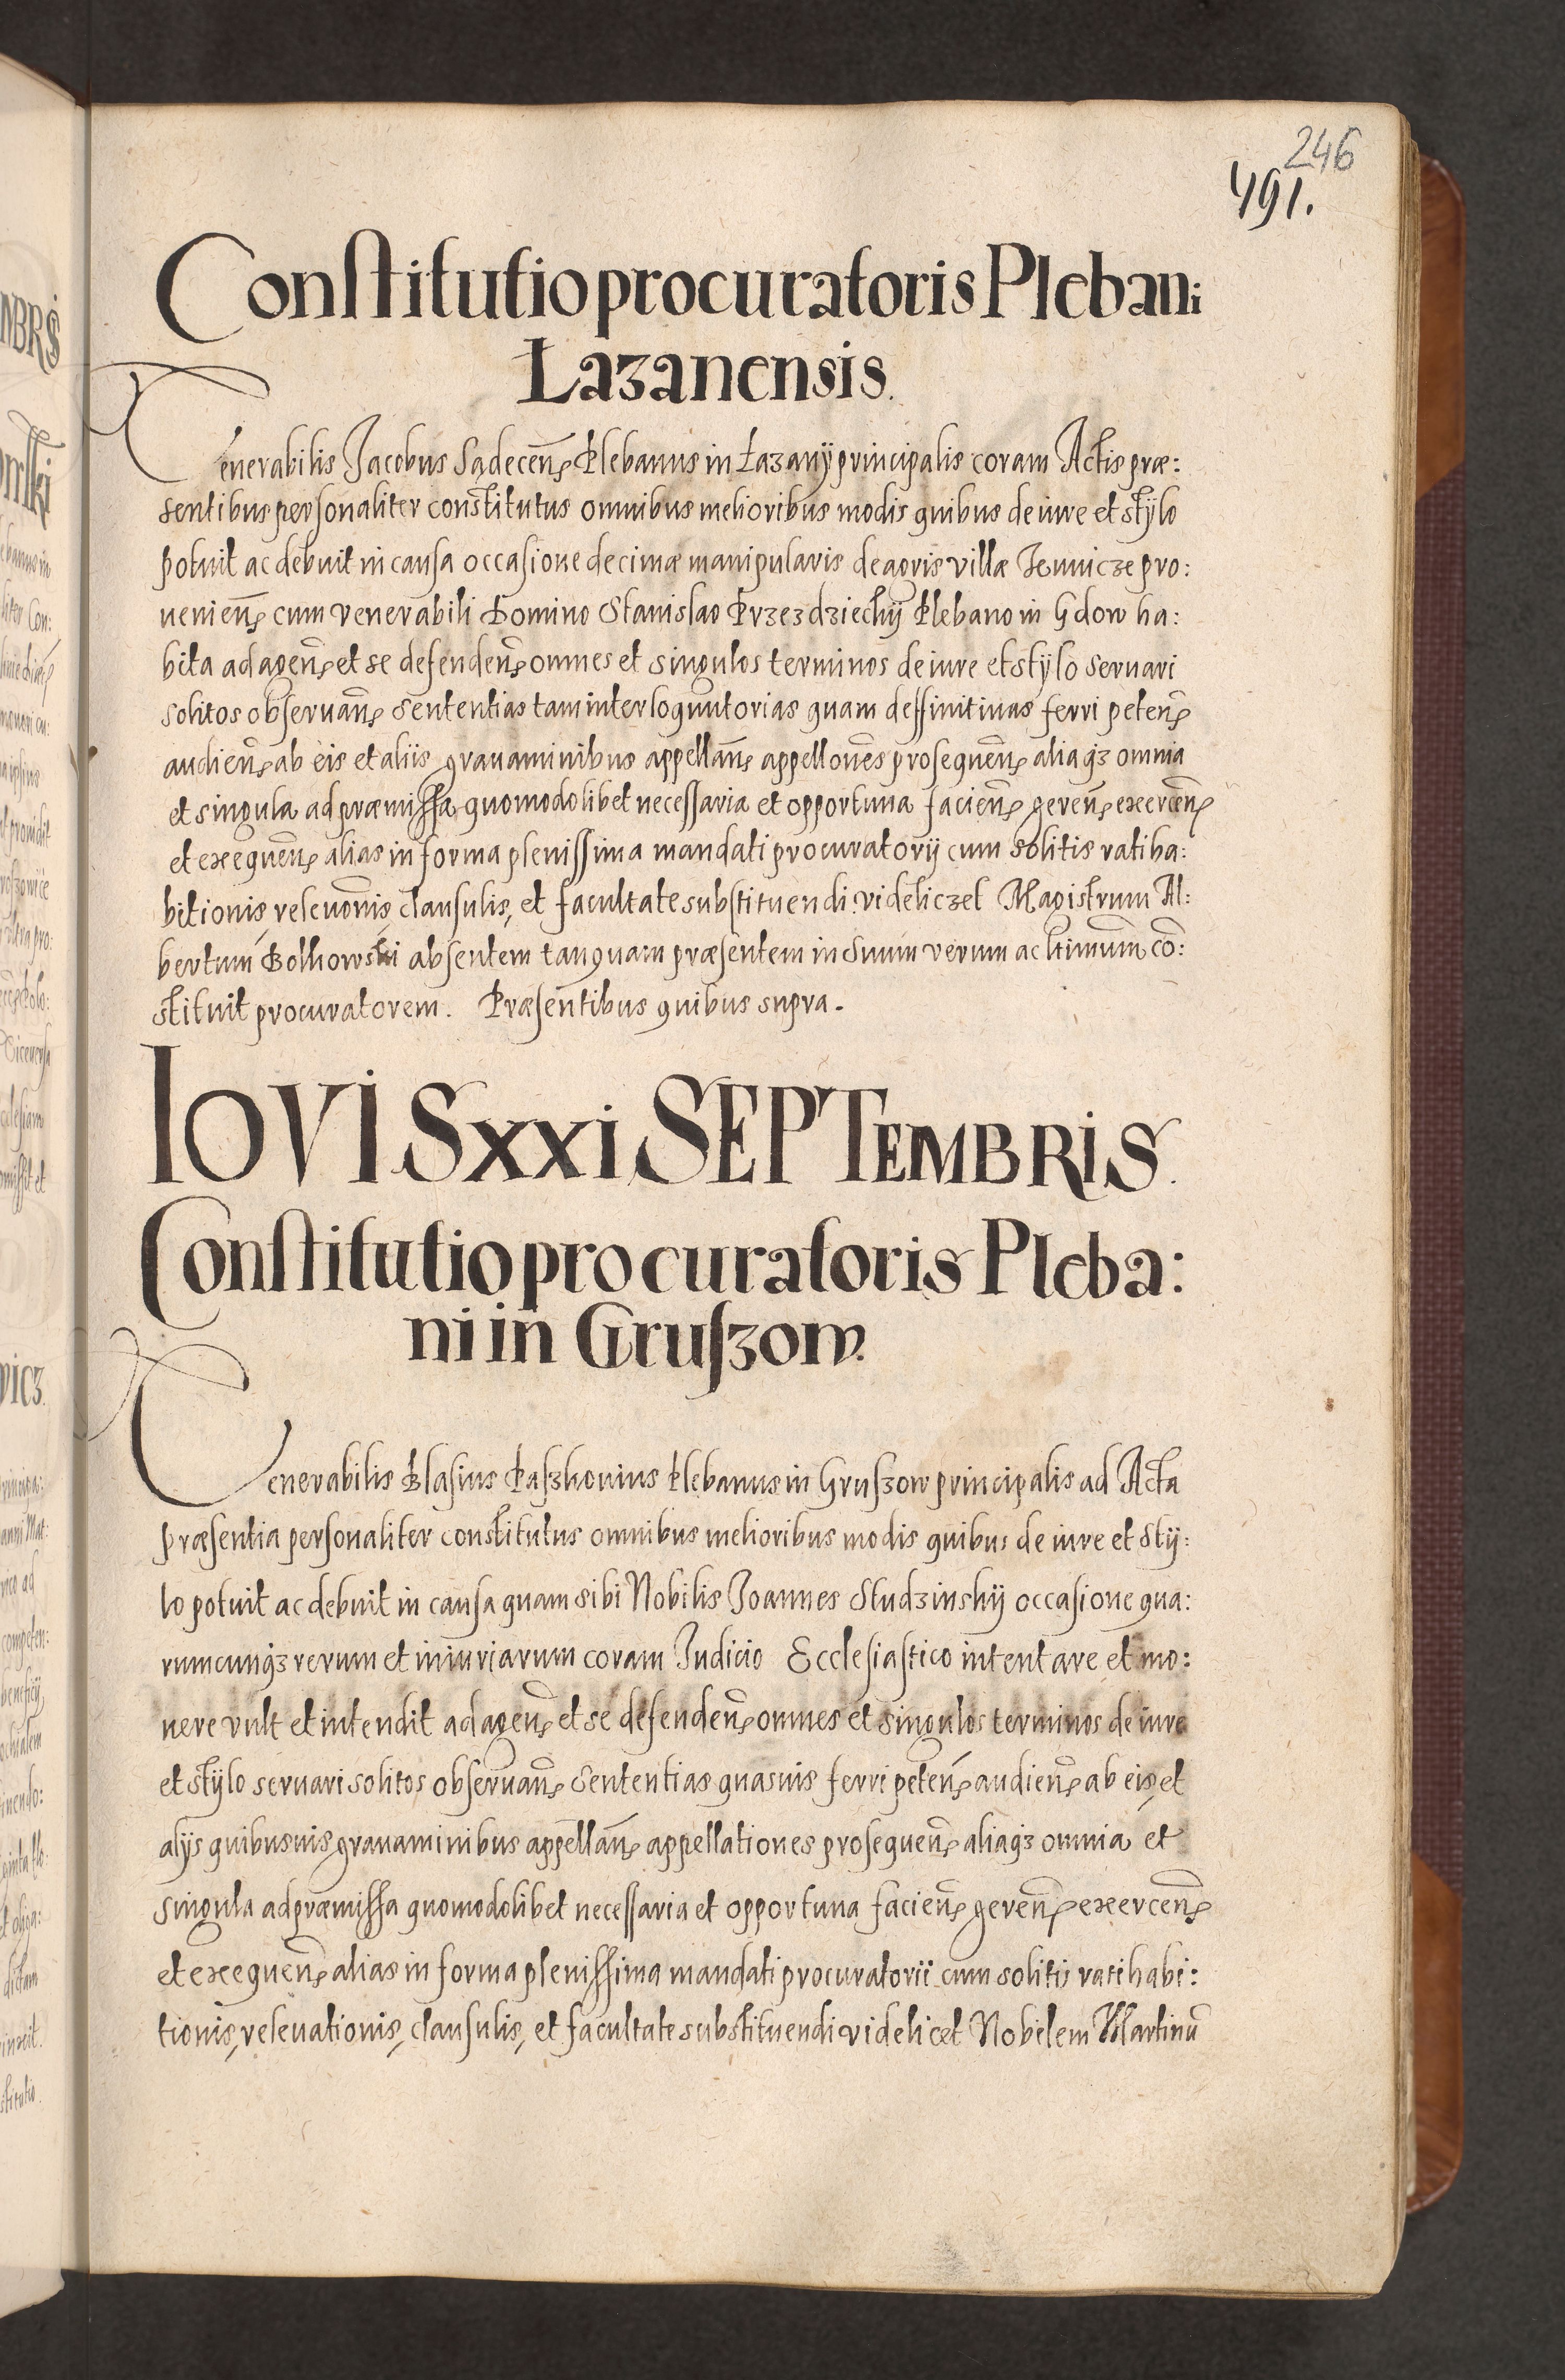 246
491.
Constitutio procuratoris Plebani
Łazanensis.
Venerabilis Jacobus Sądeceñ Plebanus in Łazany principalis coram Actis præ:
sentibus personaliter constitutus omnibus melioribus modis quibus de iure et stylo
potuit ac debuit in causa occasione decimæ manipularis de agris villæ pro:
uenieñ cum venerabili Domino Stanislao Przezdziechÿ Plebano in Gdow ha:
bita ad ageñ et se defendeñ omnes et singulos terminos de iure et stylo seruari
solitos obseruañ Sententias tam interloquutorias quam deffinitiuas ferri peteñ
audieñ ab eis et aliis grauaminibus appellañ appellões prosequeñ aliaqȝ omnia
et singula ad præmissa quomodolibet necessaria et opportuna facieñ gereñ exerceñ
et exequeñ alias in forma plenissima mandati procuratorij cum solitis ratiha:
bitionis, releuõnis, clausulis, et facultate substituendi videliczet Magistrum Al:
bertum Bolhowski absentem tanquam præsentem in Suum verum ac ltimum cõ:
stituit procuratorem. Præsentibus quibus supra.
IOVIS XXI SEPTEMBRIS.
Constitutio procuratoris Pleba:
ni in Gruszow.
Venerabilis Blasius Paszkouius Plebanus in Gruszow principalis ad Acta
præsentia personaliter constitutus omnibus melioribus modis quibus de iure et Sty:
lo potuit ac debuit in causa quam sibi Nobilis Joannes Studzinskÿ occasione qua:
rumcunqȝ rerum et iniuriarum coram Judicio Ecclesiastico intentare et mo:
uere vult et intendit ad ageñ et se defendeñ omnes et singulos terminos de iure
et stylo seruari solitos obseruañ Sententias quasuis ferri peteñ audieñ ab eis, et
alÿs quibusuis grauaminibus appellañ appellationes prosequeñ aliaqȝ omnia et
singula ad præmissa quomodolibet necessaria et opportuna facieñ gereñ exerceñ
et exequeñ alias in forma plenissima mandati procuratorii cum solitis ratihabi:
tionis, releuationis, clausulis, et facultate substituendi videlicet Nobilem Martinũ